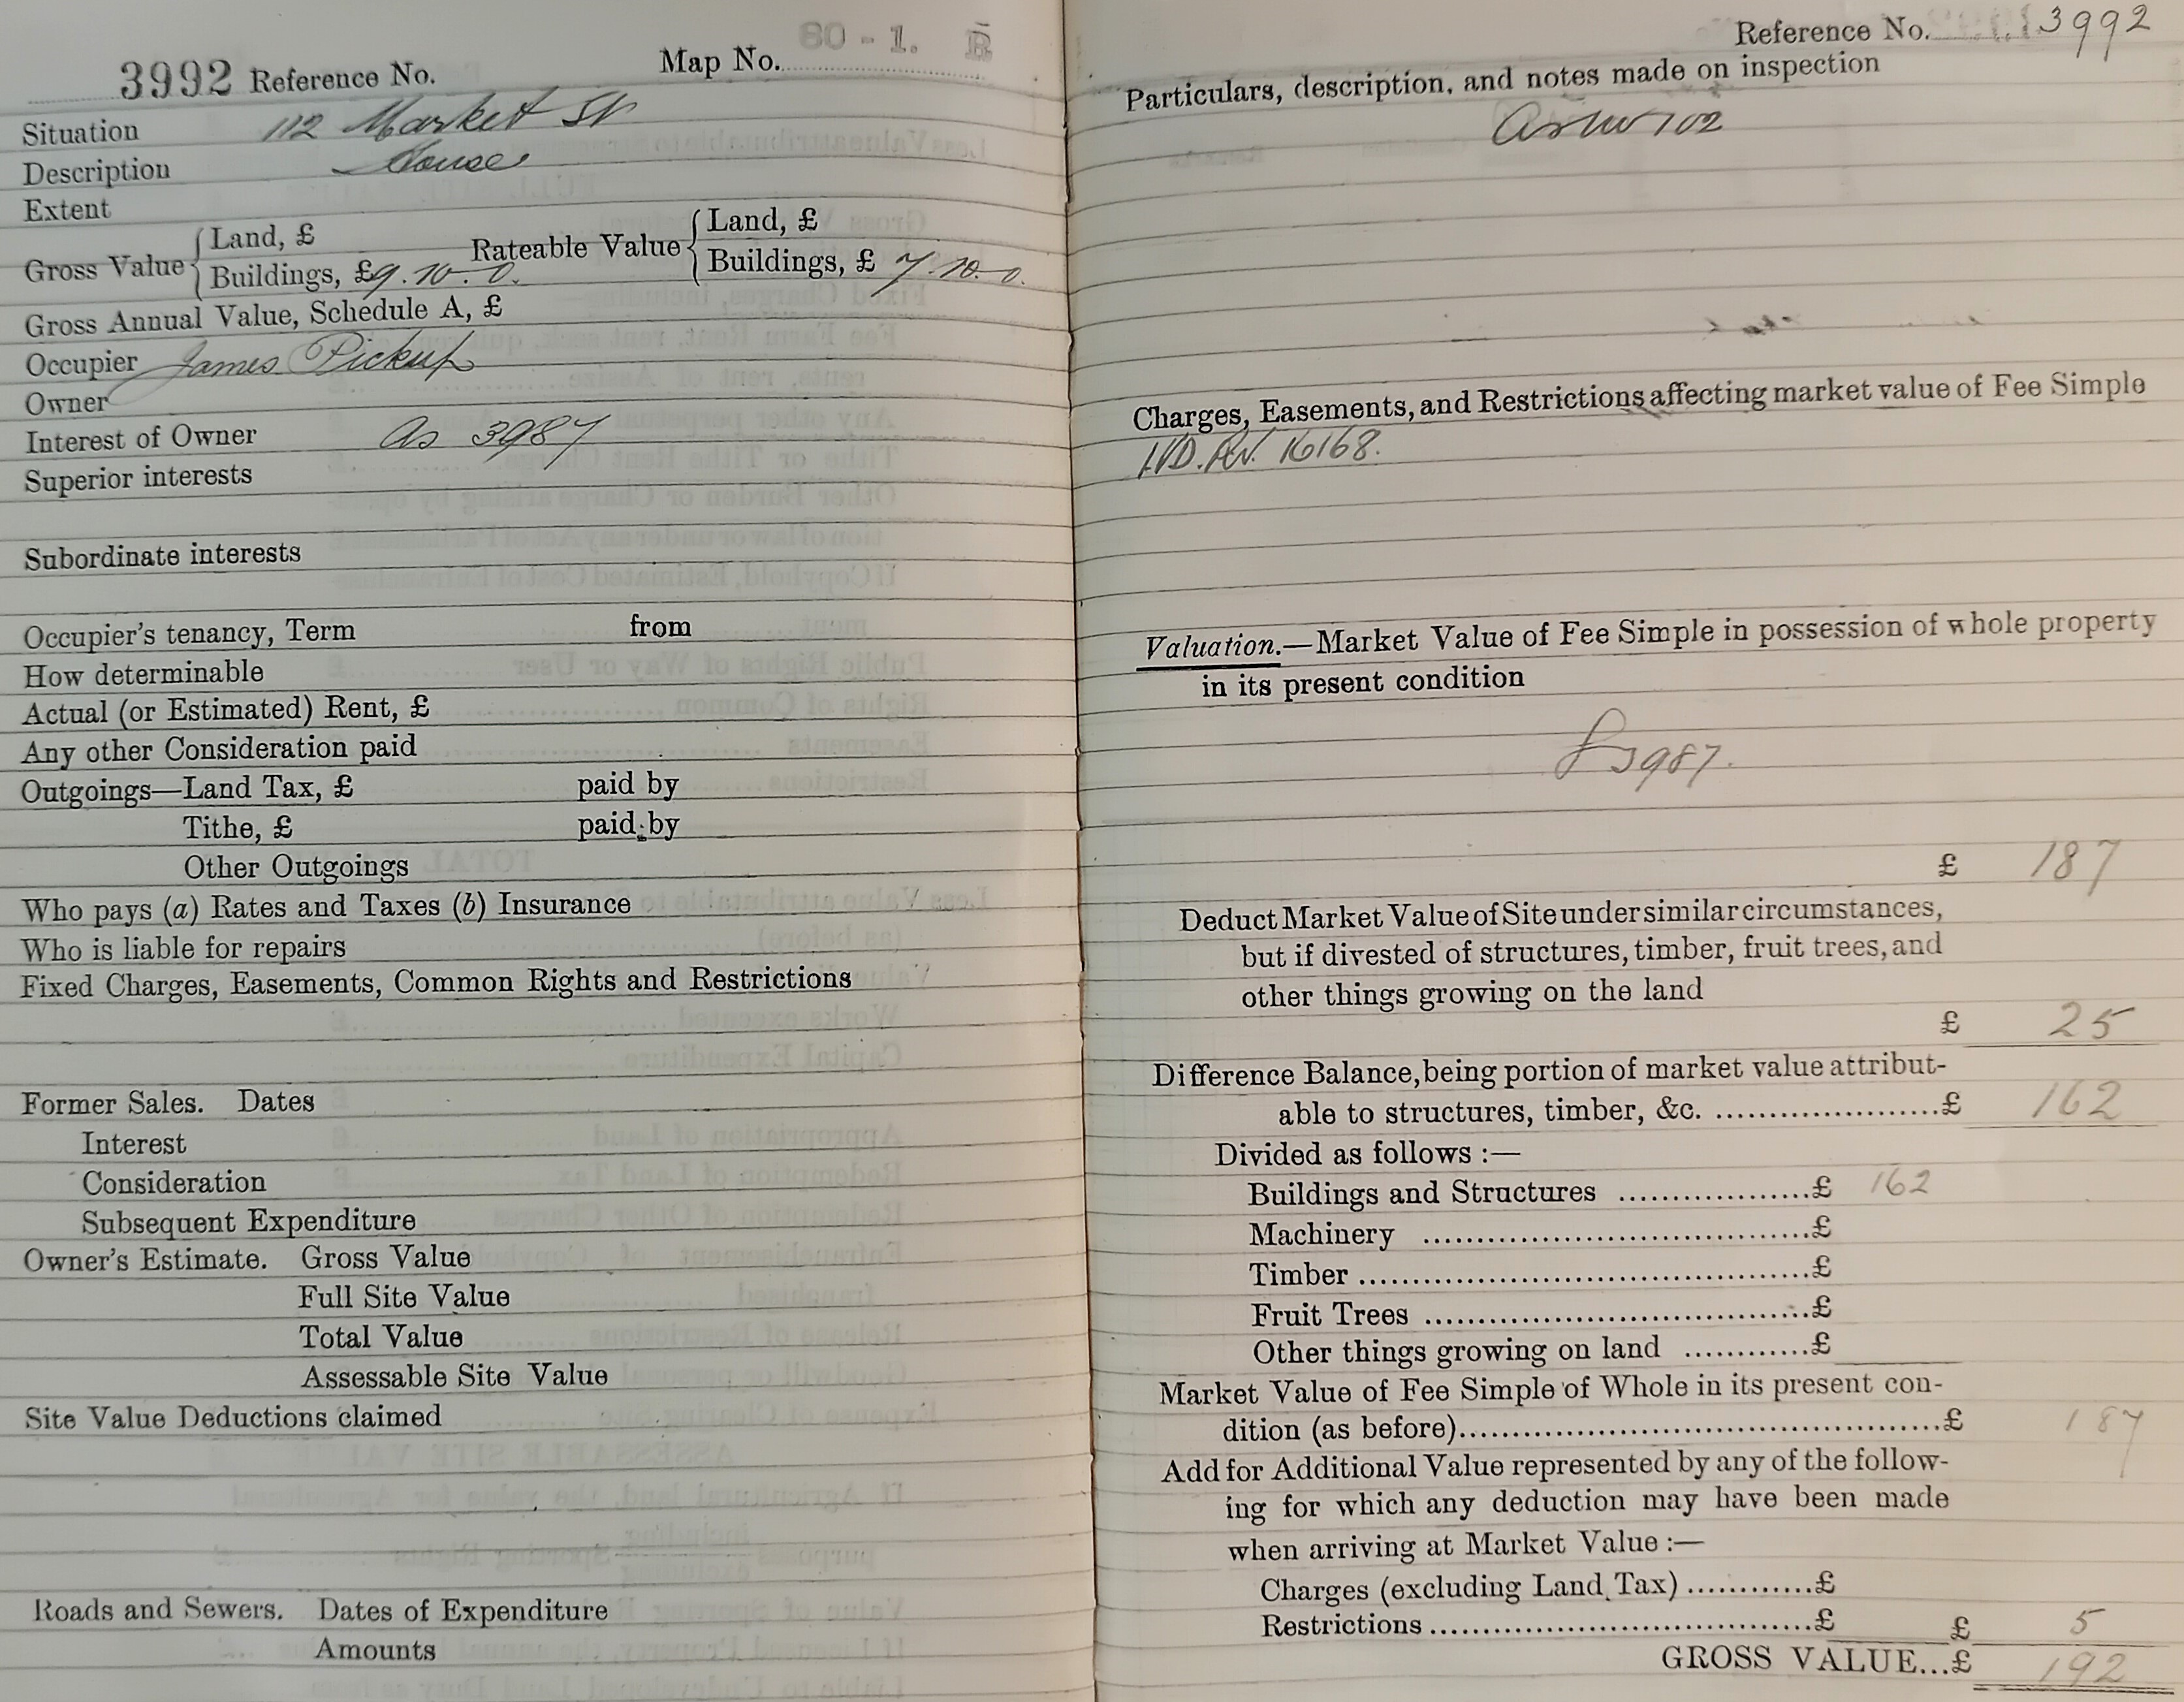 3992 Reference No. Map No. 80 - 1. B
Situation 112 Market St
Description House
Extent
Gross Value { Land, £
Buildings, £ 9. 10. 0. Rateable Value { Land, £
Buildings, £ 7. 10. 0.
Gross Annual Value, Schedule A, £
Occupier James Pickup
Owner
Interest of Owner As 3987
Superior interests
Subordinate interests
Occupier's tenancy, Term from
How determinable
Actual (or Estimated) Rent, £
Any other Consideration paid
Outgoings—Land Tax, £ paid by
Tithe, £ paid by
Other Outgoings
Who pays (a) Rates and Taxes (b) Insurance
Who is liable for repairs
Fixed Charges, Easements, Common Rights and Restrictions
Former Sales. Dates
Interest
Consideration
Subsequent Expenditure
Owner's Estimate. Gross Value
Full Site Value
Total Value
Assessable Site Value
Site Value Deductions claimed
Roads and Sewers. Dates of Expenditure
Amounts
Reference No. 3992
Particulars, description, and notes made on inspection
as no 102
Charges, Easements, and Restrictions affecting market value of Fee Simple
16168.
Valuation.—Market Value of Fee Simple in possession of whole property
in its present condition
3987.
£ 187
Deduct Market Value of Site under similar circumstances,
but if divested of structures, timber, fruit trees, and
other things growing on the land
£ 25
Difference Balance, being portion of market value attribut-
able to structures, timber, &c. ....................£ 162
Divided as follows :—
Buildings and Structures ..................£ 162
Machinery ....................................£
Timber ..........................................£
Fruit Trees ....................................£
Other things growing on land ............£
Market Value of Fee Simple of Whole in its present con-
dition (as before)..............................................£ 187
Add for Additional Value represented by any of the follow-
ing for which any deduction may have been made
when arriving at Market Value :—
Charges (excluding Land Tax) ............£
Restrictions ....................................£ £ 5
GROSS VALUE...£ 192